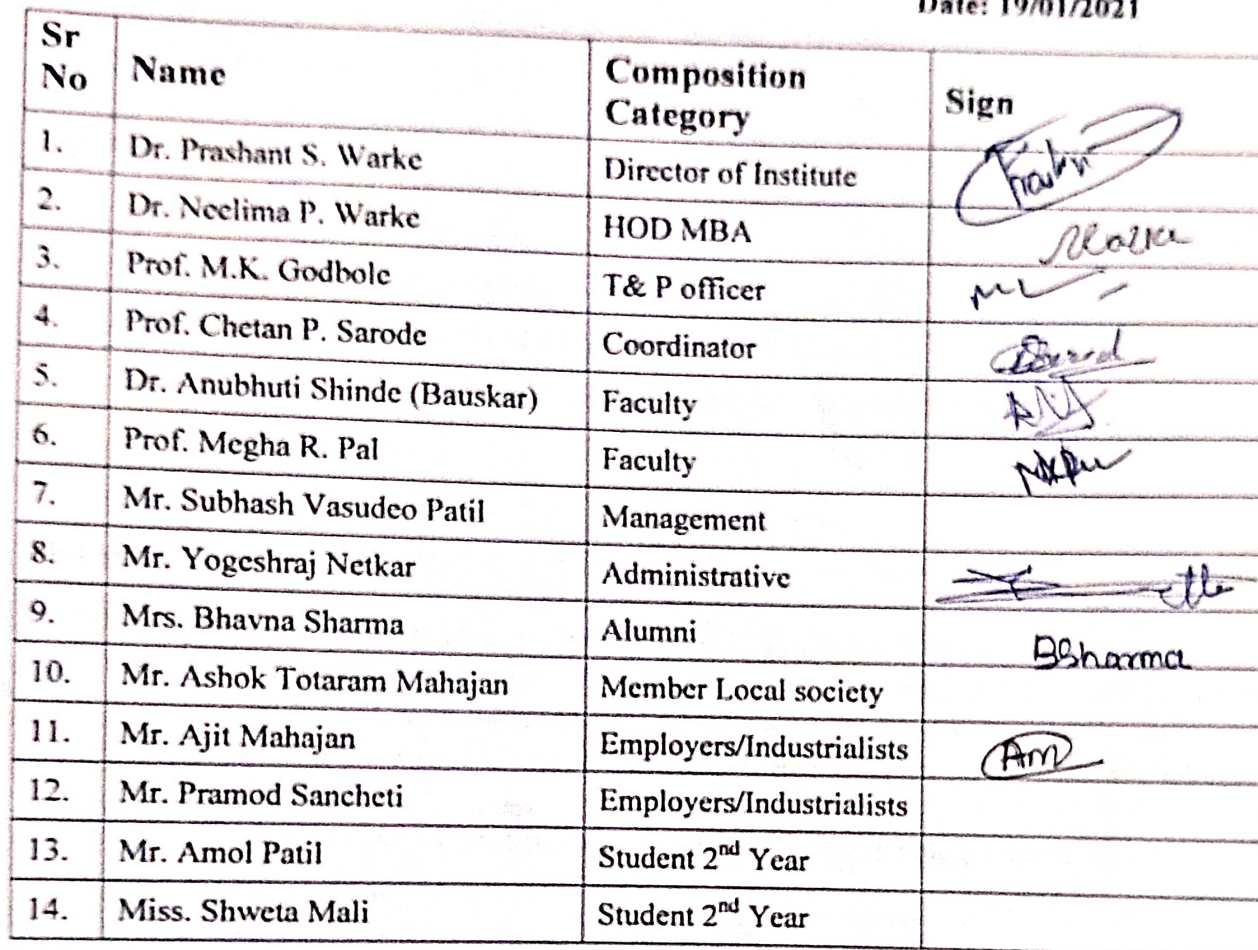 Date: 19/01/2021
Sr No Name Composition Category Sign
1. Dr. Prashant S. Warke Director of Institute
2. Dr. Neelima P. Warke HOD MBA
3. Prof. M.K. Godbole T& P officer
4. Prof. Chetan P. Sarode Coordinator
5. Dr. Anubhuti Shinde (Bauskar) Faculty
6. Prof. Megha R. Pal Faculty
7. Mr. Subhash Vasudeo Patil Management
8. Mr. Yogeshraj Netkar Administrative
9. Mrs. Bhavna Sharma Alumni BSharma
10. Mr. Ashok Totaram Mahajan Member Local society
11. Mr. Ajit Mahajan Employers/Industrialists Am
12. Mr. Pramod Sancheti Employers/Industrialists
13. Mr. Amol Patil Student 2nd Year
14. Miss. Shweta Mali Student 2nd Year